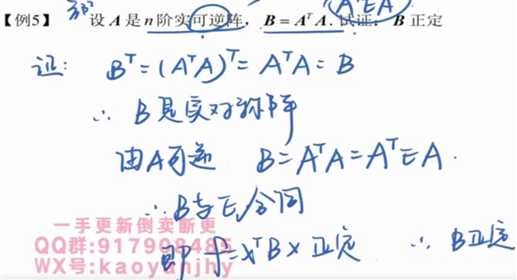 (AᵀEA)
【例5】 设 A 是 n 阶实可逆阵，B = AᵀA. 试证：B 正定
证: Bᵀ = (AᵀA)ᵀ = AᵀA = B
∴ B是实对称阵
由A可逆 B = AᵀA = AᵀEA.
∴ B与E合同
一手更新倒卖断更
QQ群:917998485
即 f = xᵀBx 正定 ∴ B正定
WX号:kaoyanjhy